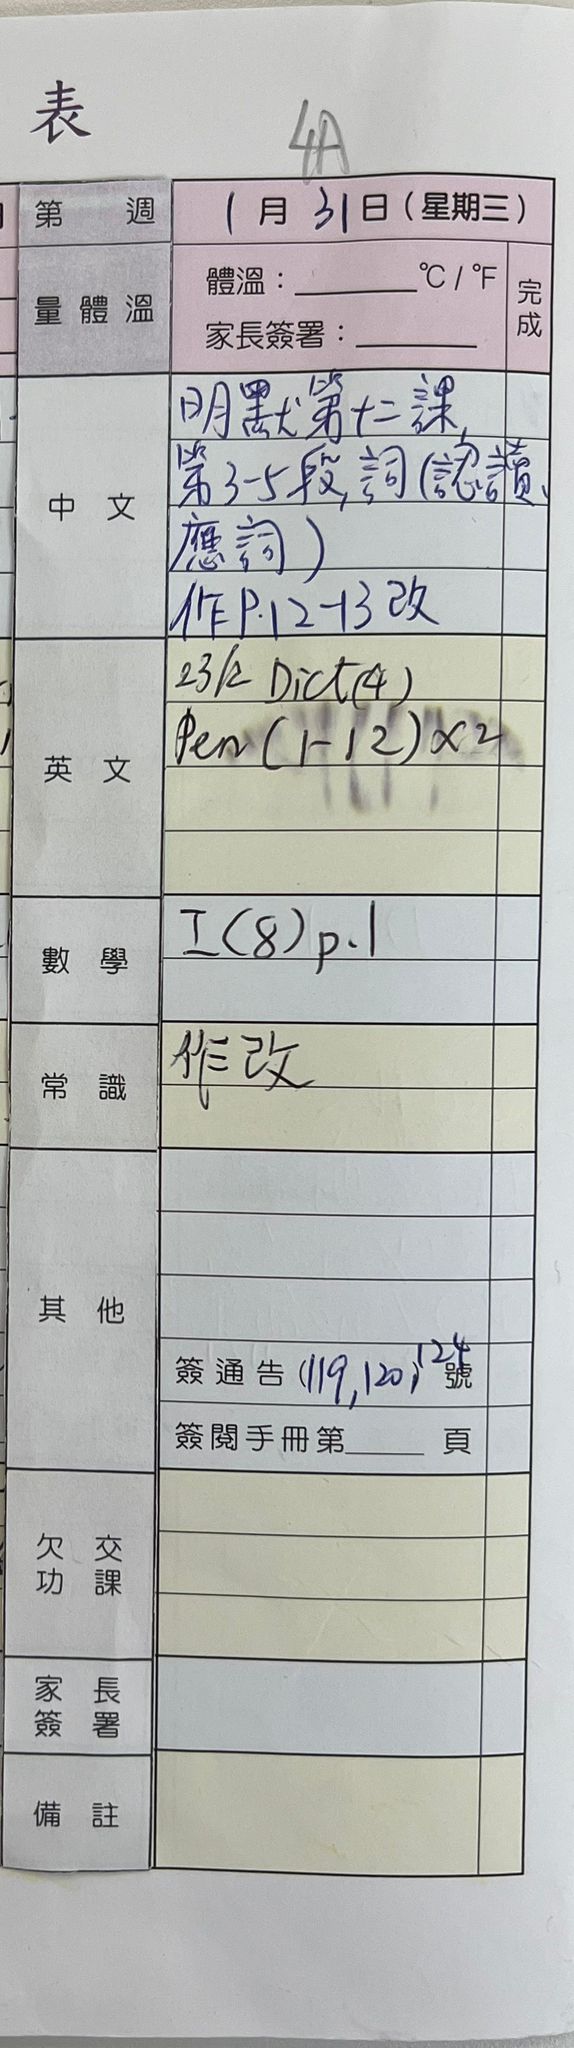 表
4A
第 週
1 月 31 日 (星期三)
量體溫
體溫：______ °C / °F
家長簽署：______
完成
中 文
明默第十二課,
第3-5段,詞(認讀、
應詞)
作P.12-13改
英 文
Dict(4)
Pen (1-12)×2
數 學
I(8)p.1
常 識
作改
其 他
簽通告(119,120),124 號
簽閱手冊第____ 頁
欠 交
功 課
家 長
簽 署
備 註